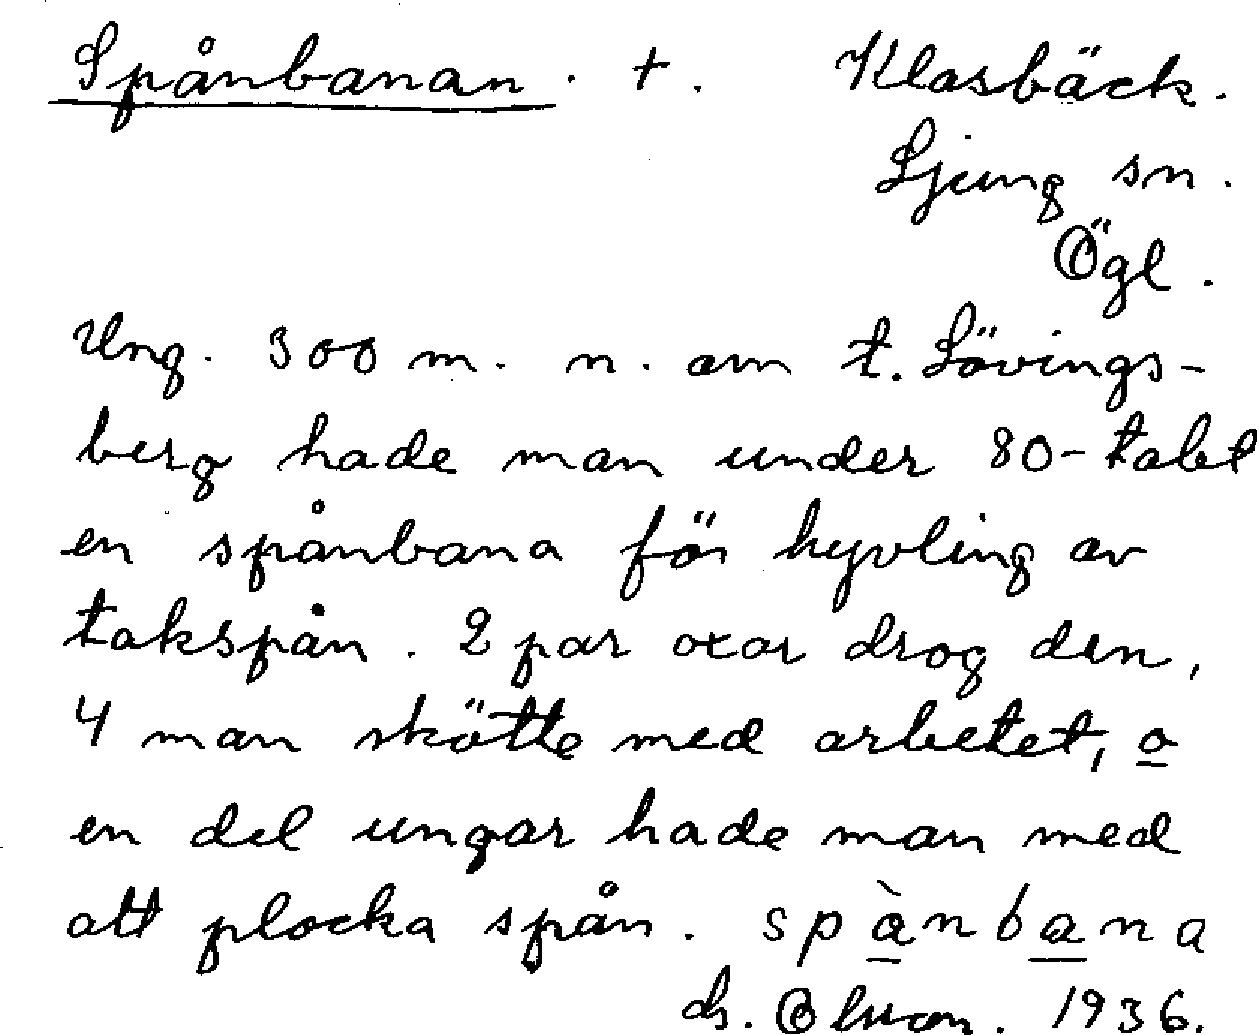 Spånbanan. +. Klasbäck.
Ljung sn.
Ögl.
Ung. 300 m. n. om t. Lövings-
berg hade man under 80-talet
en spånbana för hyvling av
takspån. 2 par oxar drog den,
4 man skötte med arbetet, o
en del ungar hade man med
att plocka spån. spànbana
1936.